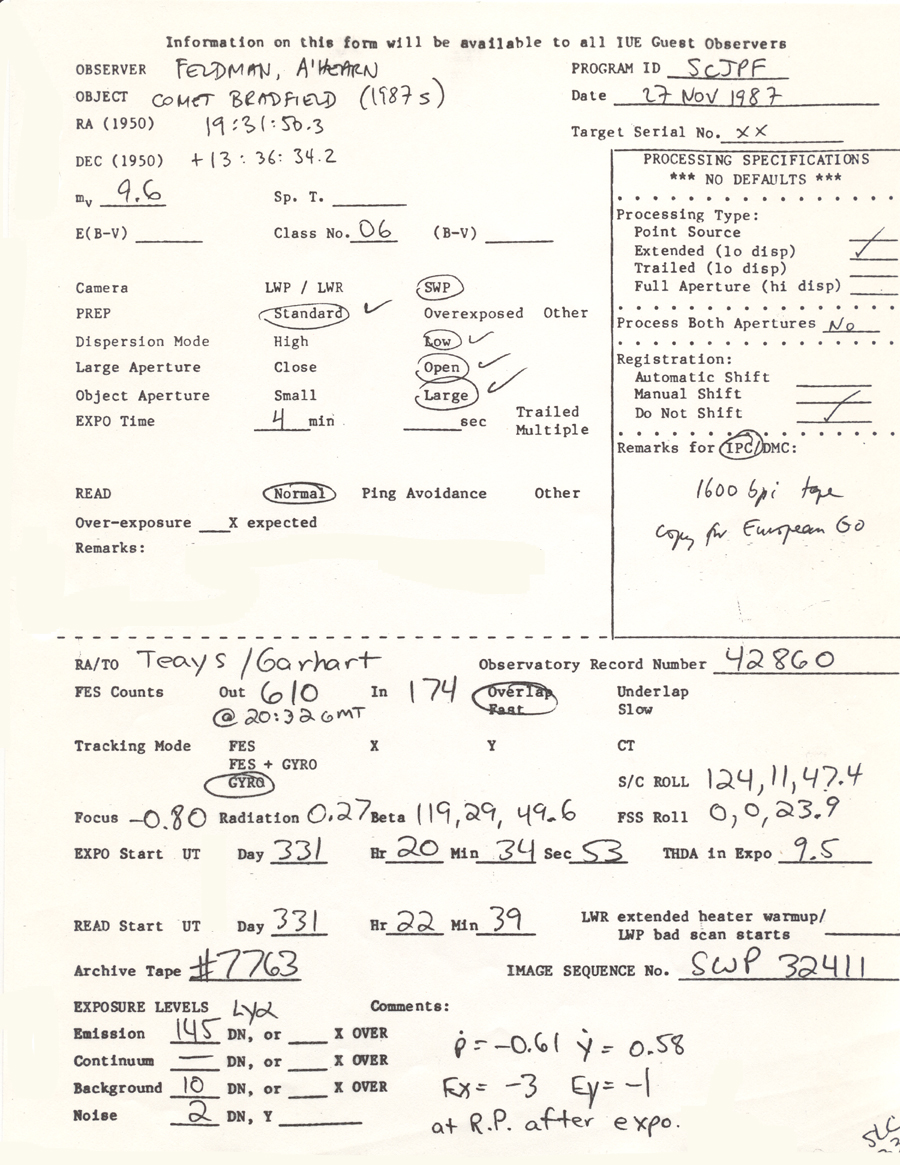 Information on this form will be available to all IUE Guest Observers
OBSERVER FELDMAN, A'HEARN
PROGRAM ID SCJPF
OBJECT COMET BRADFIELD (1987s)
Date 27 NOV 1987
RA (1950) 19:31:50.3
Target Serial No. XX
DEC (1950) +13:36:34.2
mv 9.6 Sp. T.
E(B-V) Class No. 06 (B-V)
PROCESSING SPECIFICATIONS
*** NO DEFAULTS ***
Processing Type:
Point Source
Extended (lo disp) ✓
Trailed (lo disp)
Full Aperture (hi disp)
Process Both Apertures No
Registration:
Automatic Shift
Manual Shift
Do Not Shift ✓
Remarks for IPC/DMC:
1600 bpi tape
copy for European GO
Camera LWP / LWR SWP
PREP Standard ✓ Overexposed Other
Dispersion Mode High Low ✓
Large Aperture Close Open ✓
Object Aperture Small Large ✓
EXPO Time 4 min sec Trailed
Multiple
READ Normal Ping Avoidance Other
Over-exposure X expected
Remarks:
RA/TO Teays/Garhart Observatory Record Number 42860
FES Counts Out 610 In 174 Overlap Underlap
@ 20:32 GMT Fast Slow
Tracking Mode FES X Y CT
FES + GYRO
GYRO S/C ROLL 124,11,47.4
Focus -0.80 Radiation 0.27 Beta 119,29,49.6 FSS Roll 0,0,23.9
EXPO Start UT Day 331 Hr 20 Min 34 Sec 53 THDA in Expo 9.5
READ Start UT Day 331 Hr 22 Min 39 LWR extended heater warmup/
LWP bad scan starts
Archive Tape #7763 IMAGE SEQUENCE No. SWP 32411
EXPOSURE LEVELS Lyα Comments:
Emission 145 DN, or X OVER
Continuum — DN, or X OVER
Background 10 DN, or X OVER
Noise 2 DN, Y
ṗ = -0.61 ẏ = 0.58
Ex = -3 Ey = -1
at R.P. after expo.